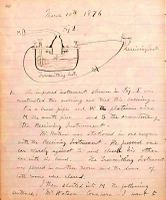 March 10th 1876
Fig. 1.
M
1. The improved instrument shown in Fig. 1 was
constructed this morning and tried this evening.
P is a brass pipe and W the platinum wire
M the mouth piece and S the armature of
the Receiving Instrument.
Mr. Watson was stationed in one room
with the Receiving Instrument. He pressed one
ear closely against S and closed his other
ear with his hand. The Transmitting Instrument
was placed in another room and the doors of
both rooms were closed.
I then shouted into M the following
sentence: "Mr. Watson, come here, I want to